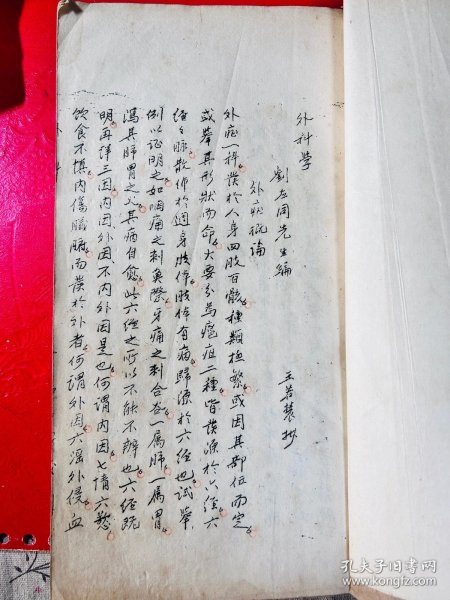 外科學
劉左同先生編
王若蘭抄
外症概論
外症一科發於人身四肢百骸種類極繁或因其部位而定
或舉其形狀而命大要分為癰疽二種皆發源於六經六
經之脈散佈於週身肢体肢体有病歸源於六經也試舉
例以证明之如咽痛之刺魚際牙痛之刺合谷一屬肺一屬胃
瀉其肺胃之火其病自愈此六經之所以不能不辨也六經既
明再详三因内因外因不内外因是也何謂内因七情六慾
飲食不慎内傷臟腑而發於外者何謂外因六淫外侵血
孔夫子旧书网